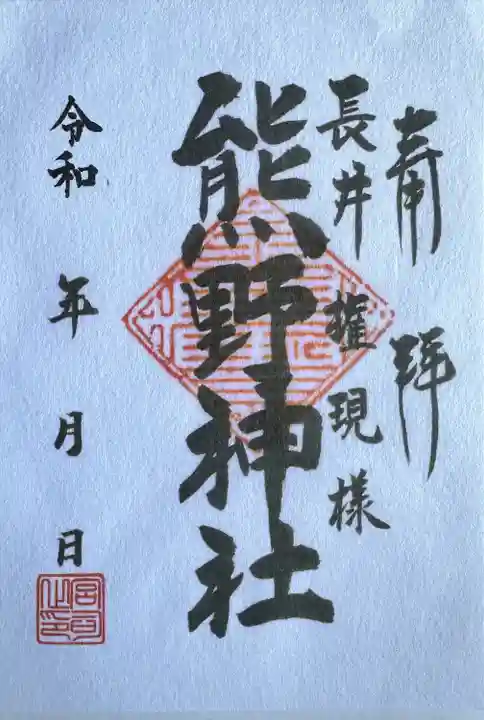 奉拝
長井権現様
熊野神社
令和 年 月 日
宮司之印